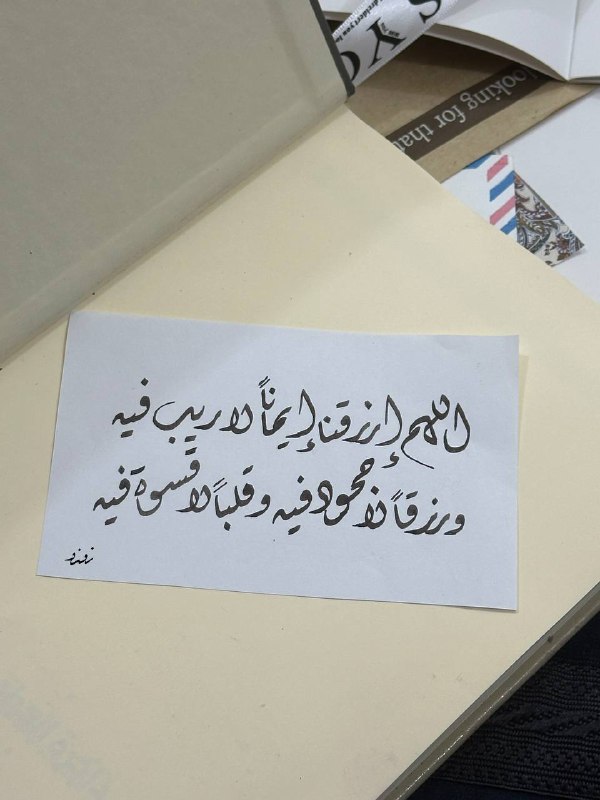 اللهم إرزقنا إيماناً لا ريب فيه
ورزقاً لا جحود فيه وقلباً لا قسوة فيه
looking for that